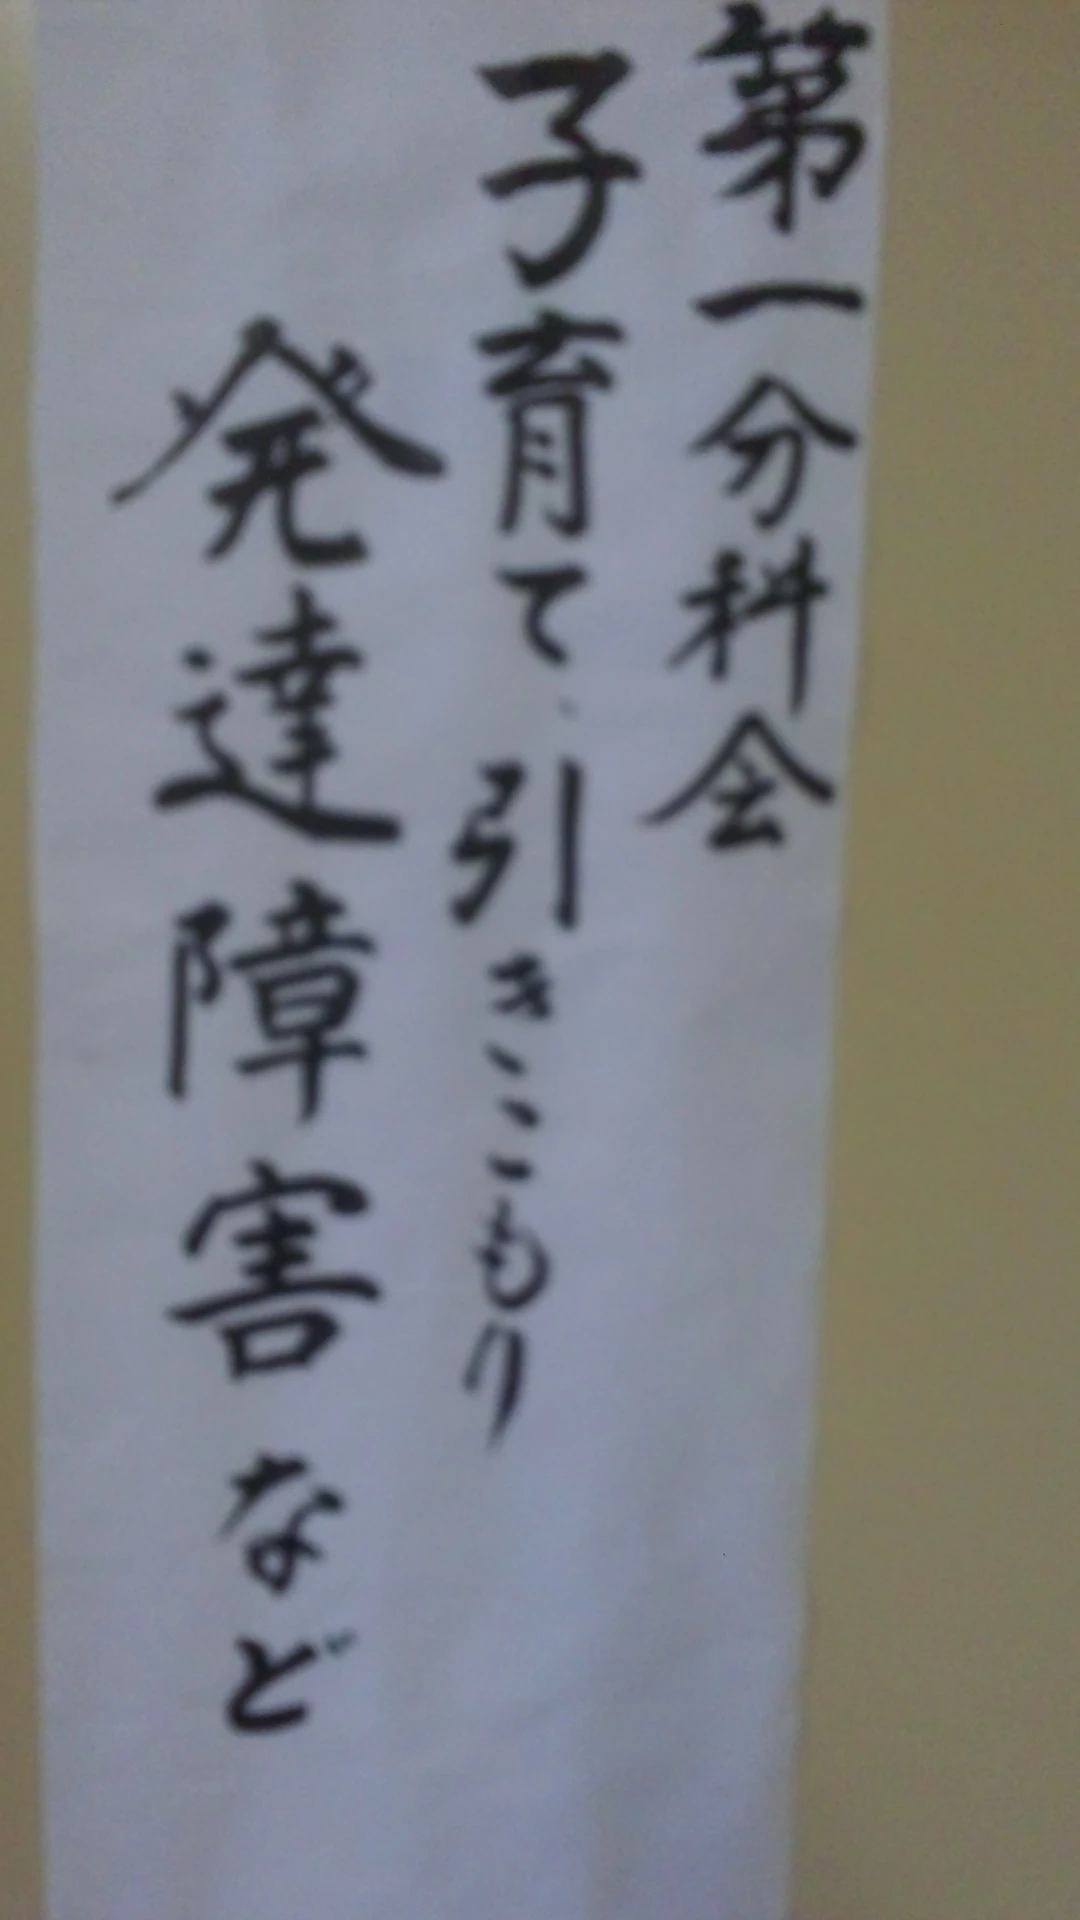 第一分科会
子育て、引きこもり
発達障害など